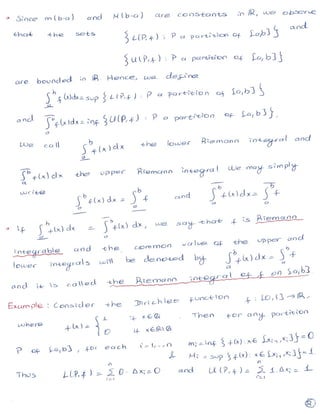 * Since m(b-a) and M(b-a) are constants in ℝ, we observe
that the sets { L(P,f) : P a partition of [a,b] } and
{ U(P,f) : P a partition of [a,b] }
are bounded in ℝ. Hence, we define
∫_a^b f(x)dx = sup { L(P,f) : P a partition of [a,b] }
and ∫_a^b f(x)dx = inf { U(P,f) : P a partition of [a,b] }.
We call ∫_a^b f(x)dx the lower Riemann integral and
∫_a^b f(x)dx the upper Riemann integral. We may simply
write ∫_a^b f(x)dx = ∫_a^b f and ∫_a^b f(x)dx = ∫_a^b f
* If ∫_a^b f(x)dx = ∫_a^b f(x)dx, we say that f is Riemann
integrable and the common value of the upper and
lower integrals will be denoted by ∫_a^b f(x)dx = ∫_a^b f
and it is called the Riemann integral of f on [a,b]
Example: Consider the Dirichlet function f: [0,1] → ℝ,
where f(x) = { 1 if x∈ℚ 0 if x∈ℝ\ℚ . Then for any partition
P of [a,b], for each i=1,...,n m_i = inf { f(x) : x∈[x_{i-1}, x_i] } = 0
& M_i = sup { f(x) : x∈[x_{i-1}, x_i] } = 1
Thus L(P,f) = Σ_{i=1}^n 0·Δx_i = 0 and U(P,f) = Σ_{i=1}^n 1·Δx_i = 1